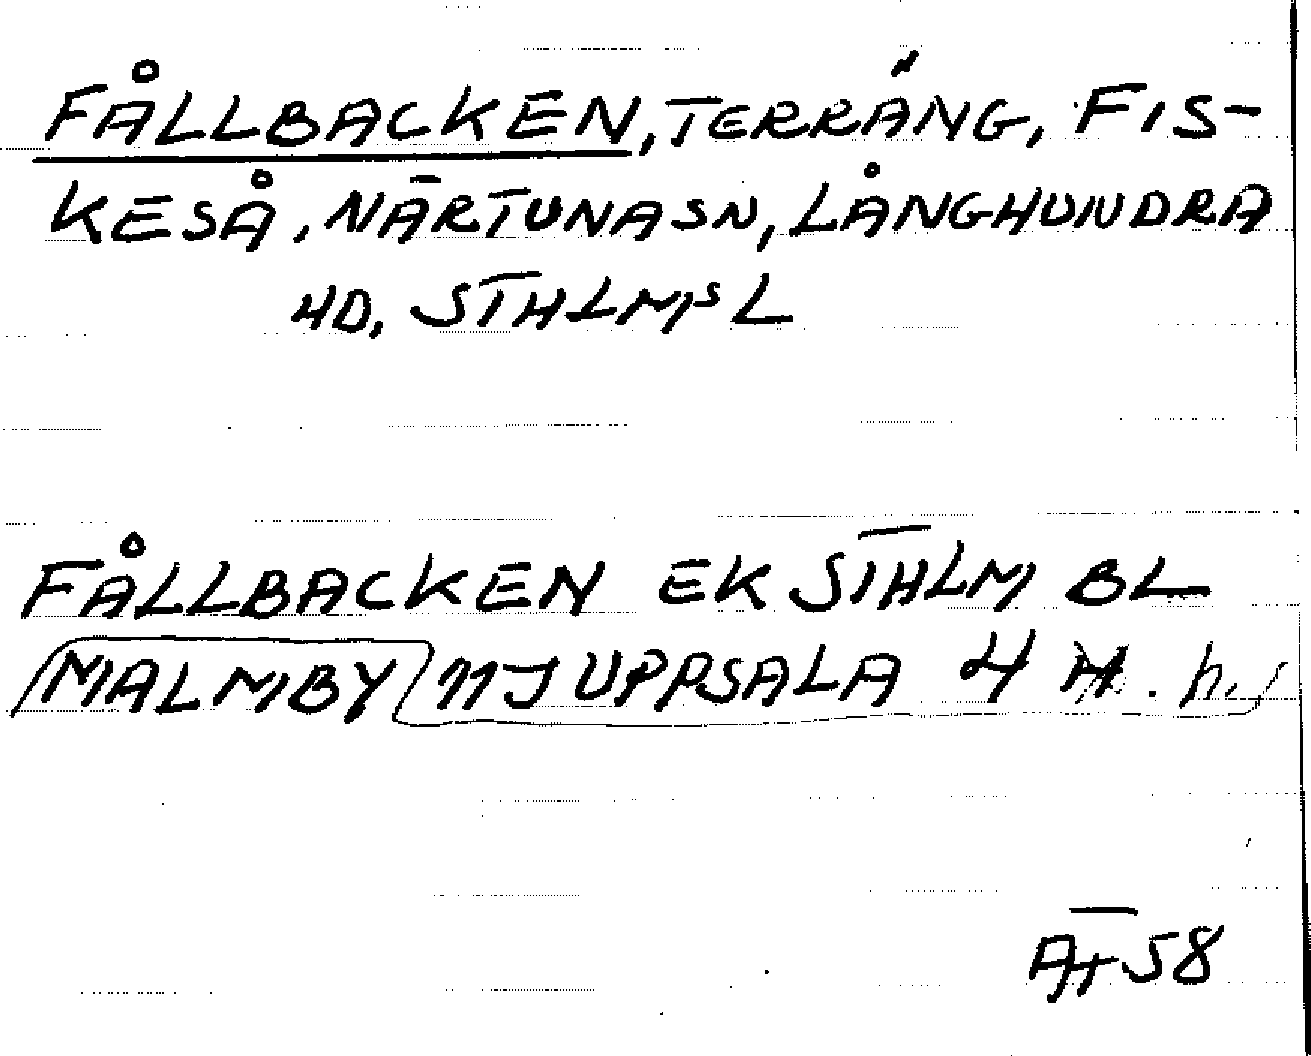 FÅLLBACKEN, TERRÄNG, FIS-
KESÅ, NÄRTUNA SN, LÅNGHUNDRA
HD, STHLMS L
FÅLLBACKEN EK STHLM BL
MALMBY 11J UPPSALA 4 h.
58